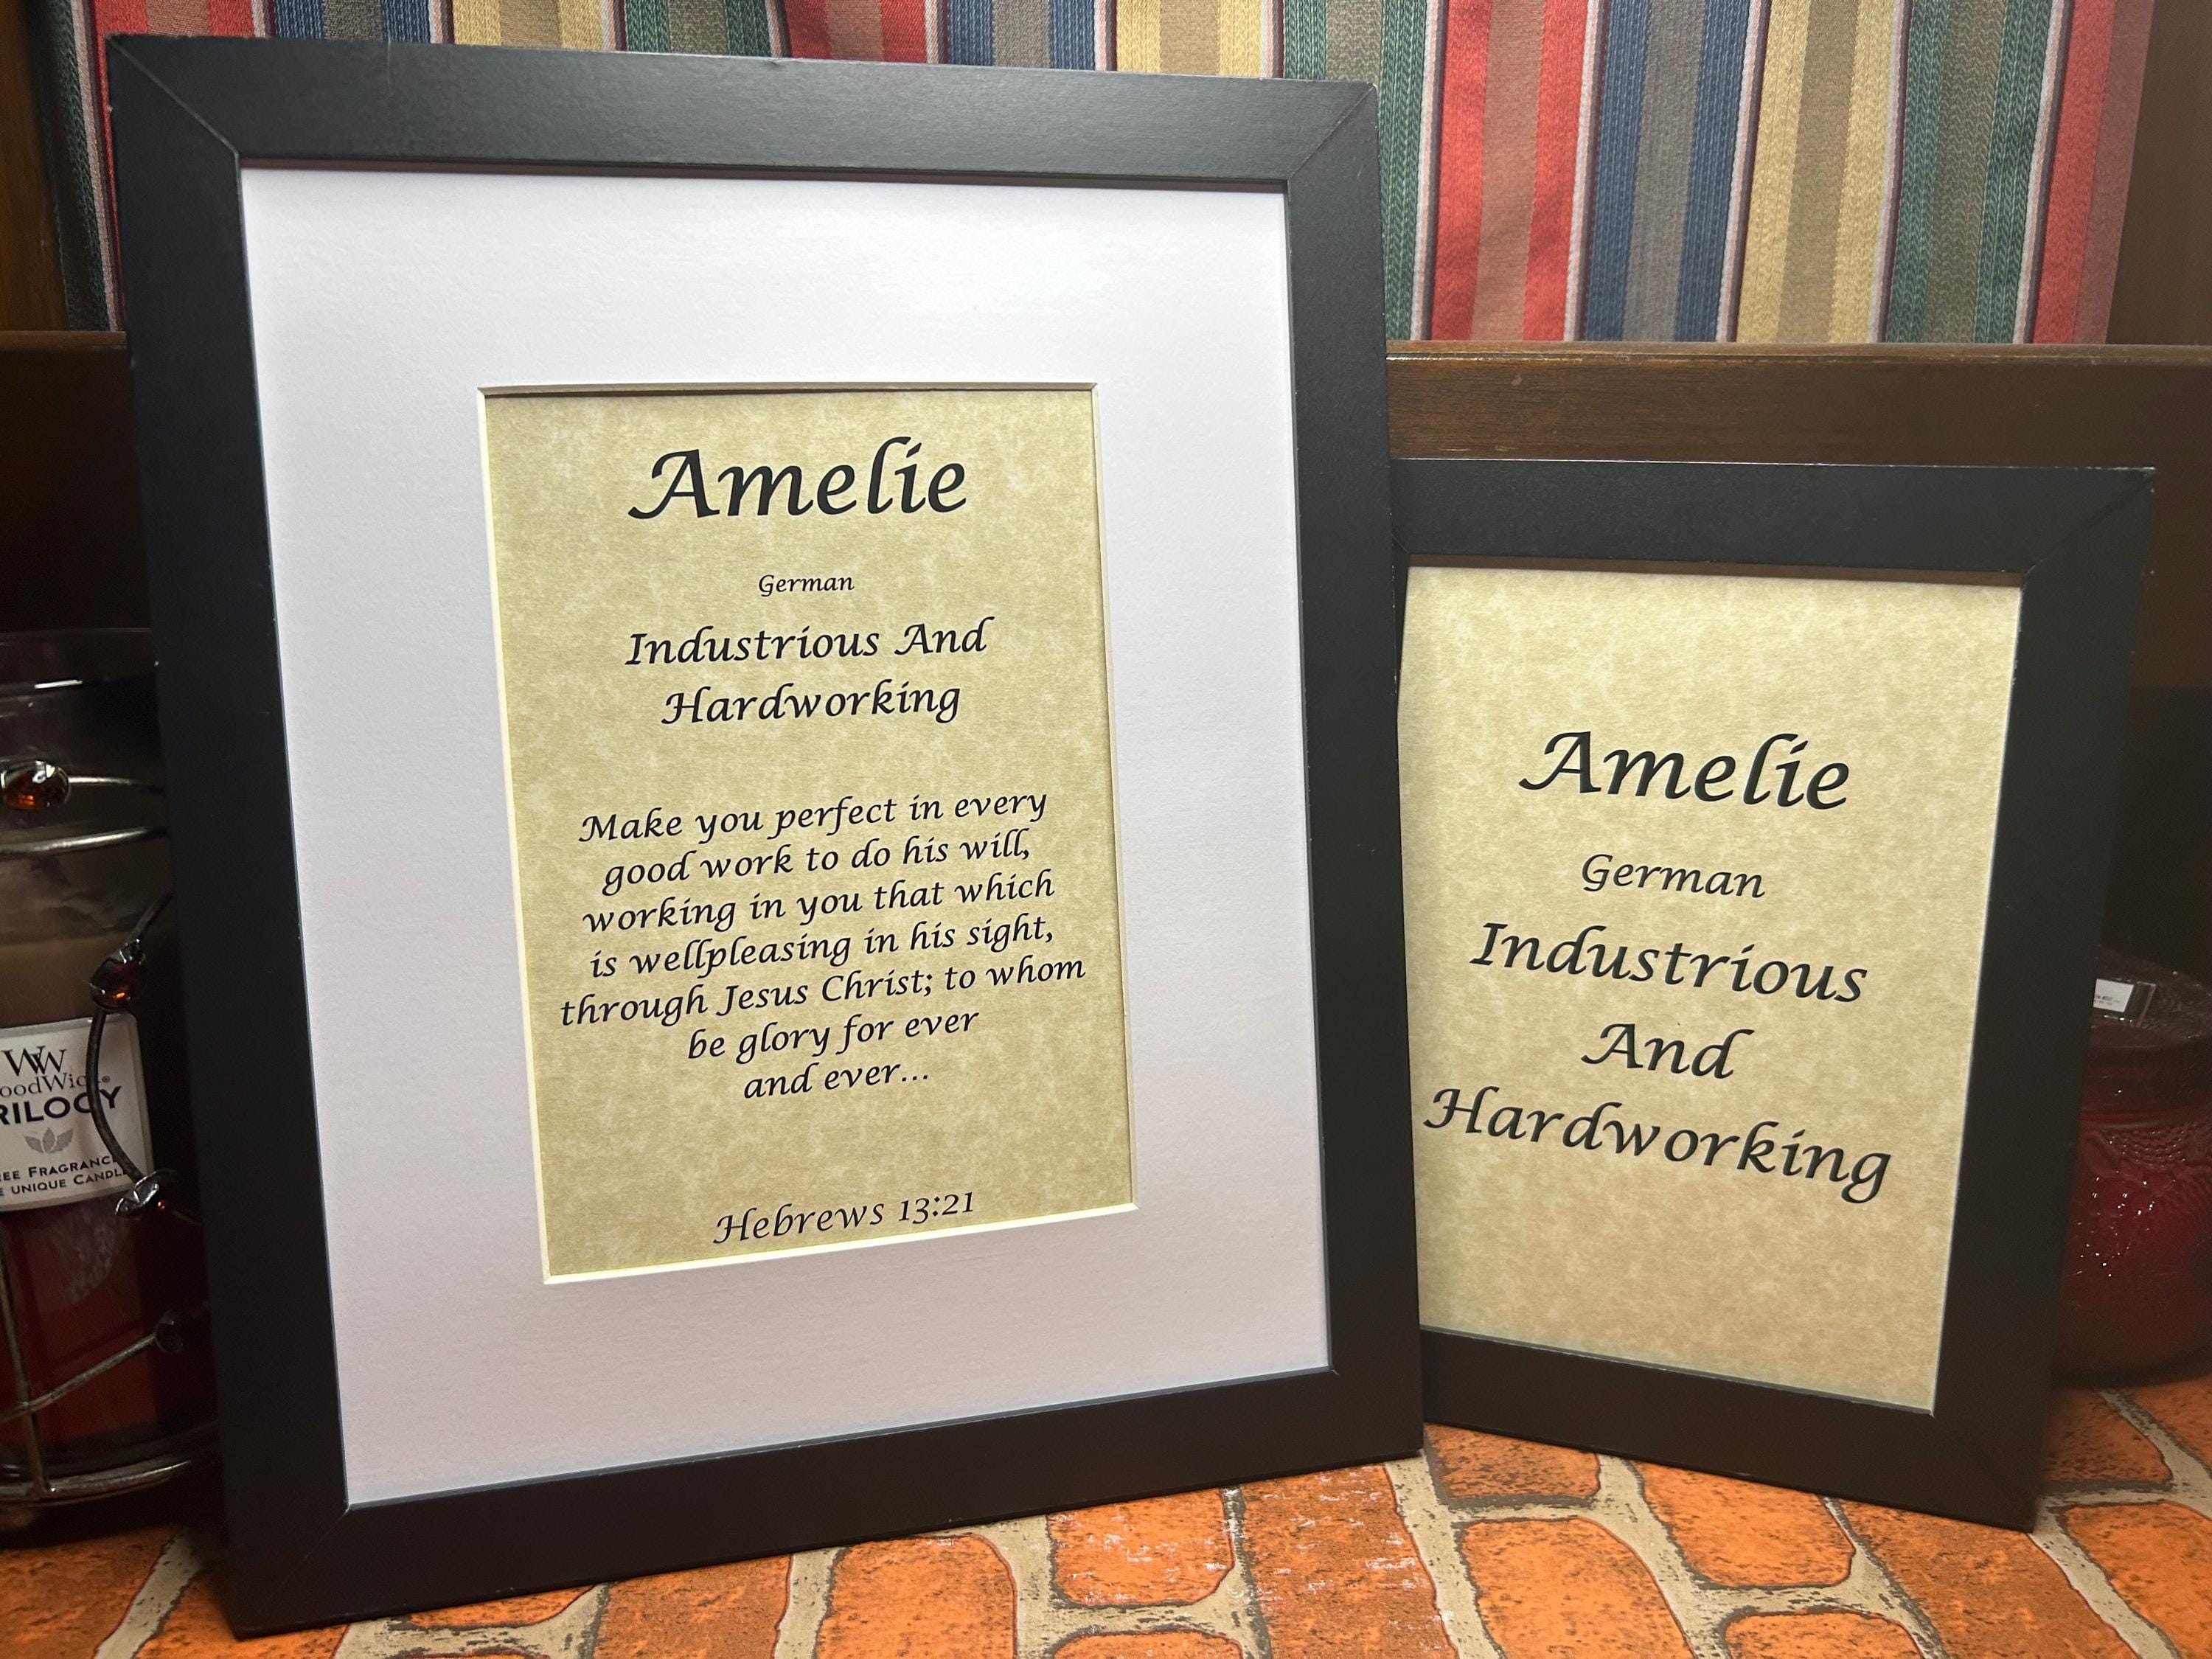 Amelie
German
Industrious And
Hardworking
Make you perfect in every
good work to do his will,
working in you that which
is wellpleasing in his sight,
through Jesus Christ; to whom
be glory for ever
and ever...
Hebrews 13:21
Amelie
German
Industrious
And
Hardworking
WW
oodWick®
RILOGY
REE FRAGRANC
E UNIQUE CANDL